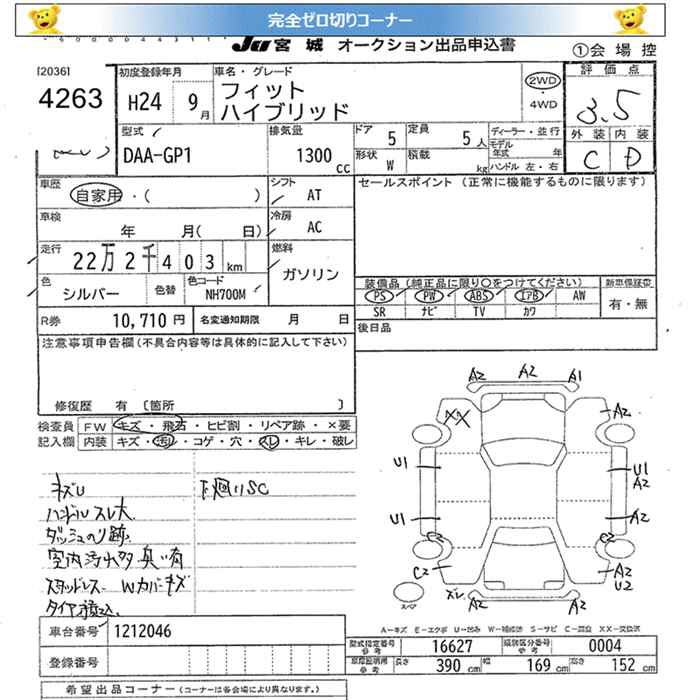 完全ゼロ切りコーナー
Ju 宮城 オークション出品申込書
①会場控
[2036]
4263
初度登録年月
H24 9月
車名・グレード
フィット
ハイブリッド
2WD
・
4WD
評価点
3.5
外装 内装
C D
型式
DAA-GP1
排気量
1300 cc
ドア 5
定員 5人
形状 W
積載 kg
ディーラー・並行
モデル年式 年
ハンドル 左・右
車歴
自家用・( )
シフト AT
車検
年 月( 日)
冷房 AC
走行
22万2千403km
燃料
ガソリン
色
シルバー
色替
色コード
NH700M
R券 10,710円
名変通知期限 月 日
セールスポイント (正常に機能するものに限ります)
装備品(純正品に限り○をつけてください)
新車保証書
PS PW ABS エアB AW
SR ナビ TV カワ
有・無
後日品
注意事項申告欄(不具合内容等は具体的に記入して下さい)
修復歴 有 〔箇所 〕
検査員
記入欄
FW キズ・飛石・ヒビ割・リペア跡・×要
内装 キズ・汚れ・コゲ・穴・スレ・キレ・破レ
キズU
ハンドルスレ大
ダッシュのり跡
室内汚れ多 臭い有
スタッドレス Wカバーキズ
タイヤ積込
下廻りSC
A2 A2 A1
XX
A2
U1
U1
A2
U1
A2
C2
C2
C2
A2
U2
スレ
A2 A2
スペア
A-キズ E-エクボ U-凹み W-補修跡 S-サビ C-腐食 XX-交換済
車台番号 1212046
登録番号
型式指定番号
参考
16627
類別区分番号
参考
0004
車庫証明用
参考
長さ 390 cm
幅 169 cm
高さ 152 cm
希望出品コーナー(コーナーは各会場により異なります。)